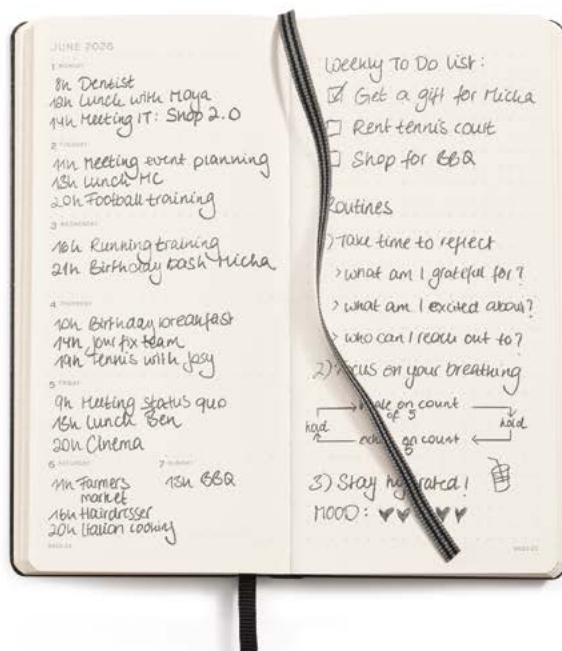 JUNE 2026
1 MONDAY
8h Dentist
12h Lunch with Maya
14h Meeting IT: Shop 2.0
2 TUESDAY
11h Meeting event planning
13h Lunch MC
20h Football training
3 WEDNESDAY
16h Running training
21h Birthday bash Micha
4 THURSDAY
10h Birthday breakfast
14h Jour fix team
19h Tennis with Josy
5 FRIDAY
9h Meeting status quo
13h Lunch Ben
20h Cinema
6 SATURDAY
11h Farmers
market
16h Hairdrsser
20h Italian cooking
7 SUNDAY
13h BBQ
Weekly To Do List:
Get a gift for Micha
Rent tennis court
Shop for BBQ
Routines
Take time to reflect
> what am I grateful for?
> what am I excited about?
> who can I reach out to?
2) Focus on your breathing
on count
of 5
hold
hold
on count
5
3) Stay hydrated!
MOOD: